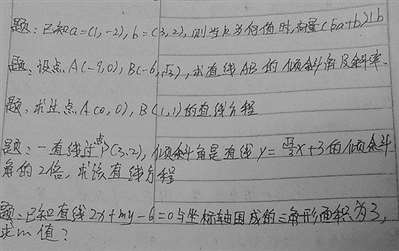 题:已知a=(1,-2),b=(3,2),则当k为何值时,向量(ka+b)⊥b
题:设点A(-9,0),B(-6,√3),求直线AB的倾斜角及斜率.
题:求过点A(0,0),B(1,1)的直线方程
题:一直线过点P(3,2),倾斜角是直线y=√3/3x+3的倾斜
角的2倍,求该直线方程
题:已知直线2x+my-6=0与坐标轴围成的三角形面积为3,
求m值?